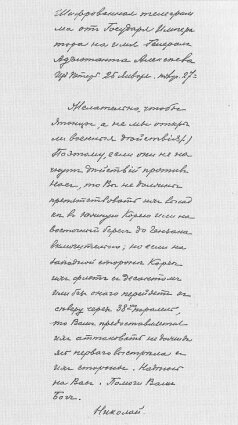 Шифрованная телеграм
ма отъ Государя Импера
тора на имя Генералъ
Адъютанта Алексѣева
Желательно, чтобы
японцы, а не мы откры
ли военныя дѣйствія.
Поэтому, если они не на
чнутъ дѣйствій противъ
насъ, то Вы не должны
препятствовать ихъ высад
кѣ въ Южную Корею или на
восточный берегъ до Гензана
включительно; но если на
западной сторонѣ Кореи
ихъ флотъ съ десантомъ
или безъ онаго перейдетъ къ
сѣверу черезъ 38ую параллель,
то Вамъ предоставляется
ихъ атаковать не дожида
ясь перваго выстрѣла съ
ихъ стороны. Надѣюсь
на Васъ. Помоги Вамъ
Богъ.
Николай